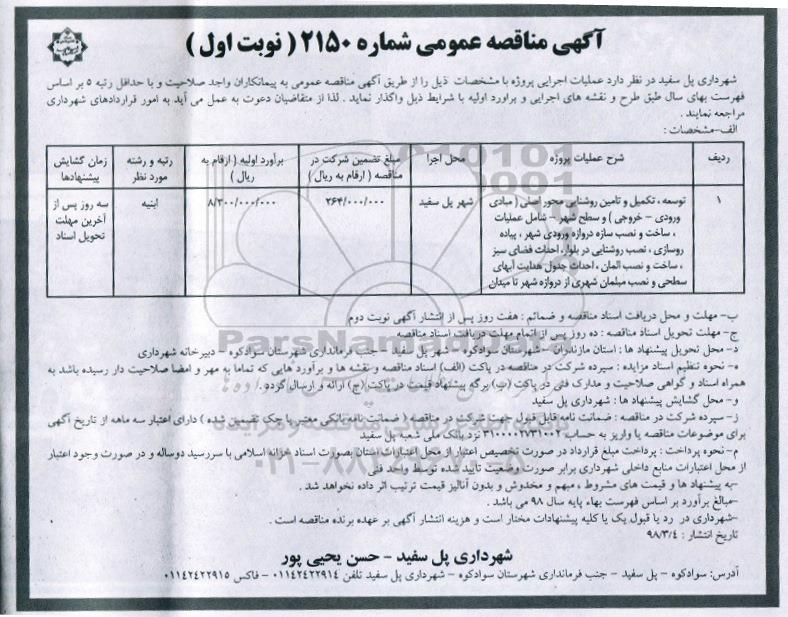 آگهی مناقصه عمومی شماره ۲۱۵۰ ( نوبت اول )
شهرداری پل سفید در نظر دارد عملیات اجرایی پروژه با مشخصات ذیل را از طریق آگهی مناقصه عمومی به پیمانکاران واجد صلاحیت و با حداقل رتبه ۵ بر اساس
فهرست بهای سال طبق طرح و نقشه های اجرایی و براورد اولیه با شرایط ذیل واگذار نماید . لذا از متقاضیان دعوت به عمل می آید به امور قراردادهای شهرداری
مراجعه نمایند .
الف-مشخصات :
ردیف
شرح عملیات پروژه
محل اجرا
مبلغ تضمین شرکت در
مناقصه ( ارقام به ریال )
برآورد اولیه ( ارقام به
ریال )
رتبه و رشته
مورد نظر
زمان گشایش
پیشنهادها
۱
توسعه ، تکمیل و تامین روشنایی محور اصلی ( مبادی
ورودی - خروجی ) و سطح شهر - شامل عملیات
، ساخت و نصب سازه دروازه ورودی شهر ، پیاده
روسازی ، نصب روشنایی در بلوار، احداث فضای سبز
، ساخت و نصب المان ، احداث جدول هدایت آبهای
سطحی و نصب مبلمان شهری از دروازه شهر تا میدان
شهر پل سفید
۲۶۴/۰۰۰/۰۰۰
۸/۳۰۰/۰۰۰/۰۰۰
ابنیه
سه روز پس از
آخرین مهلت
تحویل اسناد
ب- مهلت و محل دریافت اسناد مناقصه و ضمائم : هفت روز پس از انتشار آگهی نوبت دوم
ج- مهلت تحویل اسناد مناقصه : ده روز پس از اتمام مهلت دریافت اسناد مناقصه
د- محل تحویل پیشنهاد ها : استان مازندران - شهرستان سوادکوه - شهر پل سفید - جنب فرمانداری شهرستان سوادکوه - دبیرخانه شهرداری
ه- نحوه تنظیم اسناد مزایده : سپرده شرکت در مناقصه در پاکت (الف) اسناد مناقصه و نقشه ها و برآورد هایی که تماما به مهر و امضا صلاحیت دار رسیده باشد به
همراه اسناد و گواهی صلاحیت و مدارک فنی در پاکت (ب) برگه پیشنهاد قیمت در پاکت (ج) ارائه و ارسال گردد .
و- محل گشایش پیشنهاد ها : شهرداری پل سفید
ز- سپرده شرکت در مناقصه : ضمانت نامه قابل قبول جهت شرکت در مناقصه ( ضمانت نامه بانکی معتبر یا چک تضمین شده ) دارای اعتبار سه ماهه از تاریخ آگهی
برای موضوعات مناقصه یا واریز به حساب ۳۱۰۰۰۰۲۷۳۱۰۰۲ نزد بانک ملی شعبه پل سفید
م- نحوه پرداخت : پرداخت مبلغ قرارداد در صورت تخصیص اعتبار از محل اعتبارات استان بصورت اسناد خزانه اسلامی با سررسید دوساله و در صورت وجود اعتبار
از محل اعتبارات منابع داخلی شهرداری برابر صورت وضعیت تایید شده توسط واحد فنی
-به پیشنهاد ها و قیمت های مشروط ، مبهم و مخدوش و بدون آنالیز قیمت ترتیب اثر داده نخواهد شد .
-مبالغ برآورد بر اساس فهرست بهاء پایه سال ۹۸ می باشد .
-شهرداری در رد یا قبول یک یا کلیه پیشنهادات مختار است و هزینه انتشار آگهی بر عهده برنده مناقصه است .
تاریخ انتشار : ۹۸/۳/۴
شهرداری پل سفید - حسن یحیی پور
آدرس: سوادکوه - پل سفید - جنب فرمانداری شهرستان سوادکوه - شهرداری پل سفید تلفن ۰۱۱۴۲۴۲۲۹۱۴ - فاکس ۰۱۱۴۲۴۲۲۹۱۵
ParsNamadData